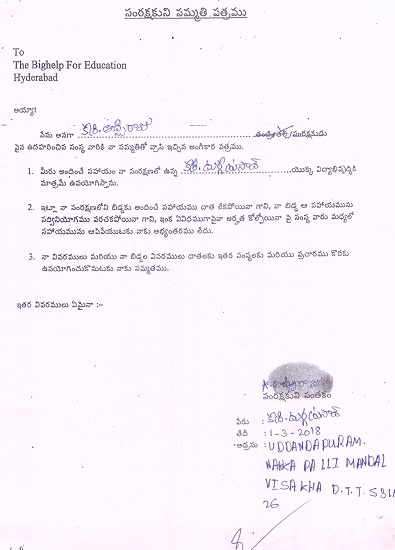 సంరక్షకుని సమ్మతి పత్రము
To
The Bighelp For Education
Hyderabad
అయ్యా!
పేను అనగా తండ్రి/తల్లి/సంరక్షకుడు
పైన ఉదహరించిన సంస్థ వారికి నా సమ్మతితో వ్రాసి ఇచ్చిన అంగీకార పత్రము.
1. మీరు అందించే సహాయం నా సంరక్షణలో ఉన్న యొక్క విద్యాభివృద్ధికి
మాత్రమే ఉపయోగిస్తాను.
2. ఇట్లా నా సంరక్షణలోని బిడ్డకు అందించే సహాయము దాత లేకపోయినా గాని, నా బిడ్డ ఆ సహాయమును
సద్వినియోగము పరచకపోయినా గాని, ఇంక ఏవిధముగానైనా అర్హత కోల్పోయినా పై సంస్థ వారు మధ్యలో
సహాయమును ఆపివేయుటకు నాకు అభ్యంతరము లేదు.
3. నా వివరములు మరియు నా బిడ్డల వివరములు దాతలకు ఇతర సంస్థలకు మరియు ప్రచారము కొరకు
ఉపయోగించుకొనుటకు నాకు సమ్మతము.
ఇతర వివరములు ఏమైనా :-
సంరక్షకుని సంతకం
పేరు :
తేదీ : 1-3-2018
అడ్రసు : UDDANDAPURAM.
NAKKA PALLI MANDAL
VISAKHA D.T.T 531
26